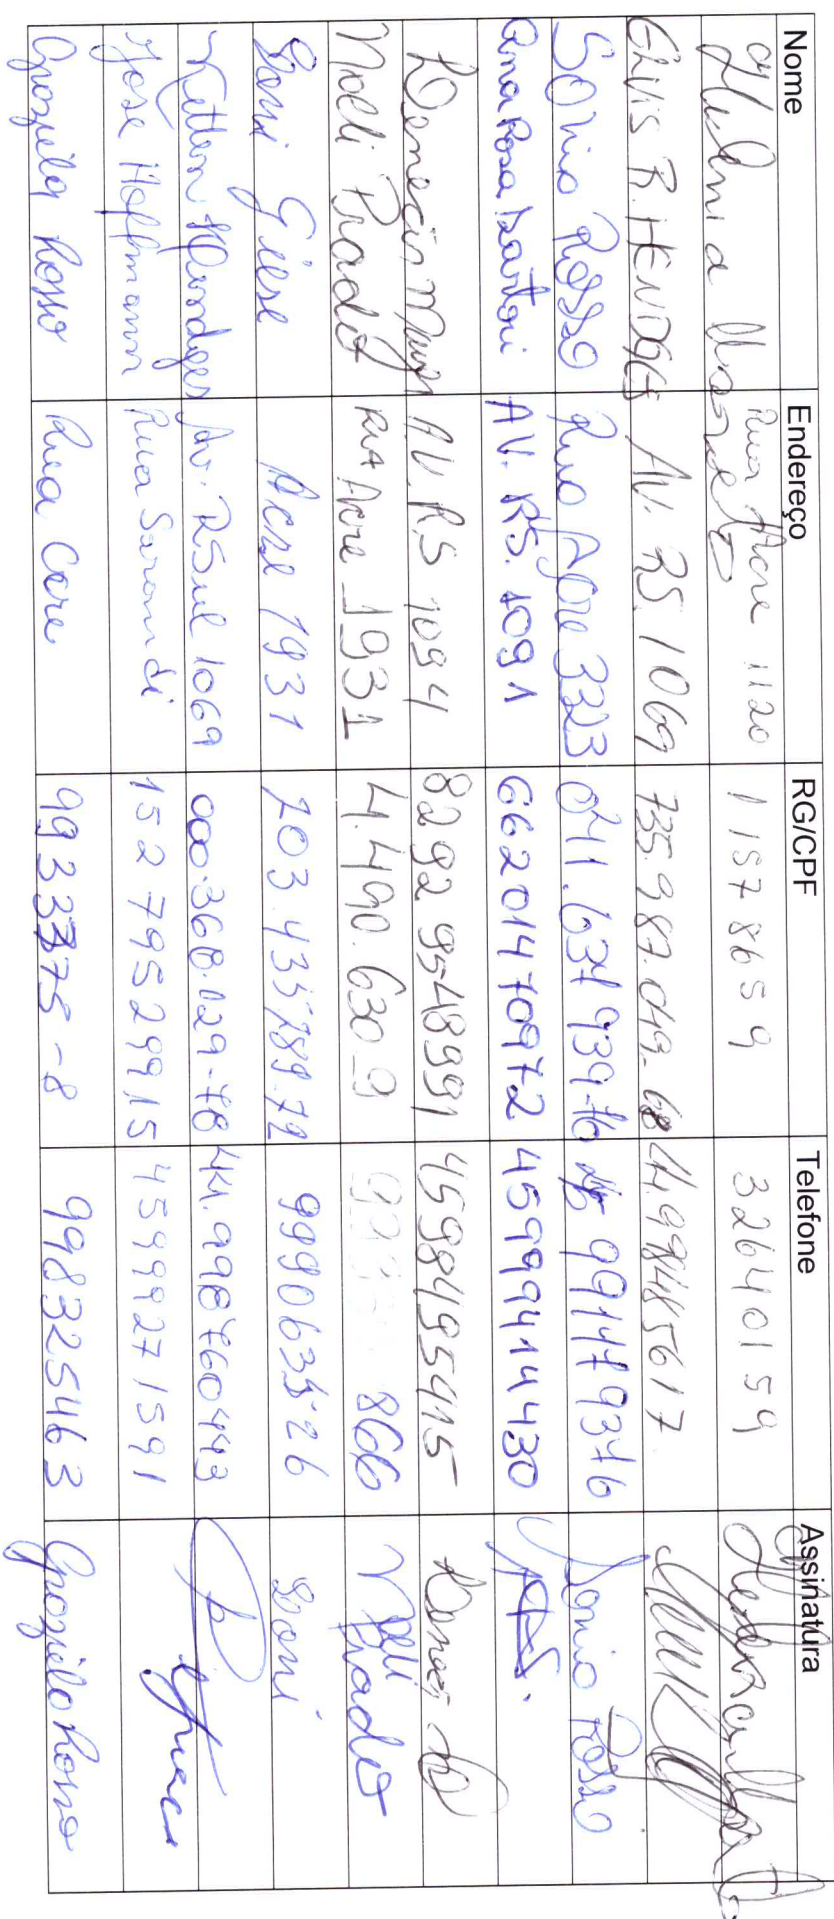 Nome Endereço RG/CPF Telefone Assinatura
Rua Acre 1120 11578659 32640159
ELVIS R. HENDGES AV. RS. 1069 735.987.049-68 44.998485617
Sonia Rosso Rua Acre 3323 041.637939-76 45 991479376
Ana Rosa Sartori AV. RS. 1091 66201470972 45999414430
AV. RS 1094 82929548991 4598495415
Noeli Prado RUA Acre 1931 4.490.630-9 866 Noeli Prado
Giese Acre 1931 703.435789.72 999063526
Ketlen Hendges Av. RSul 1069 000.368.029-78 44.998760443
Jose Hoffmann Rua Sarandi 15279529915 45999271591
Graziela Rosso Rua Acre 9933375-8 9998325463 Graziela Rosso